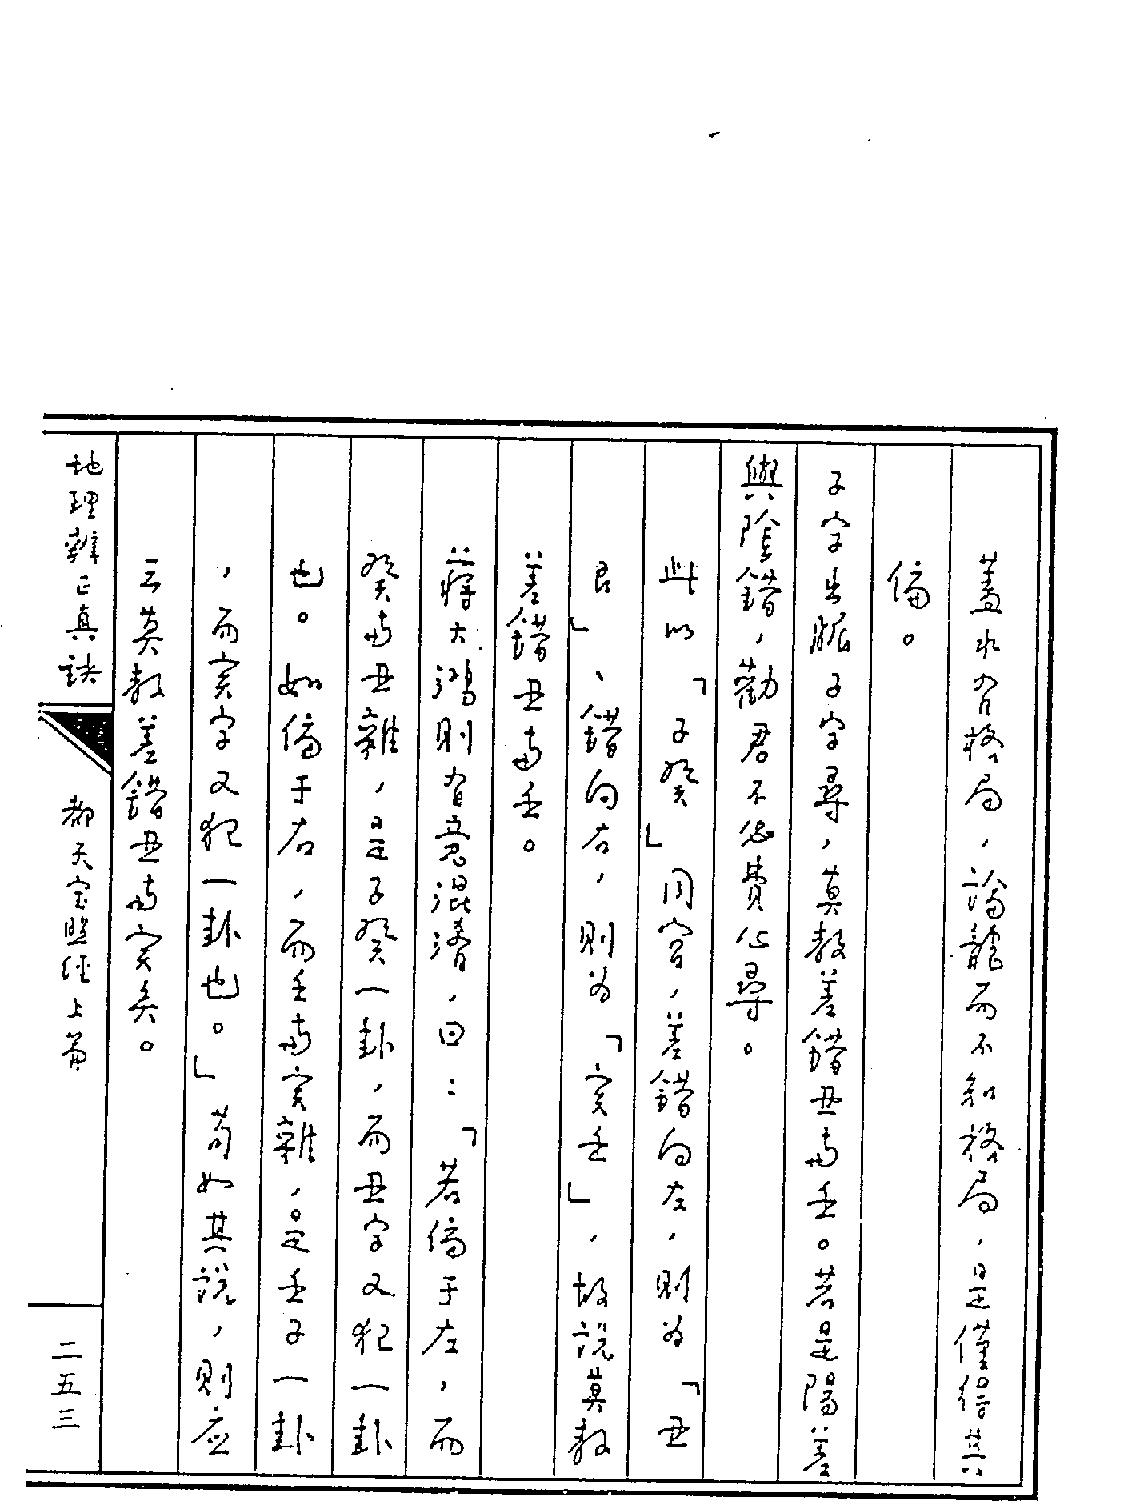 蓋水有格局，論龍而不知格局，是僅得其
偏。
子字出脈子字尋，莫教差錯丑與壬。若是陽差
與陰錯，勸君不必費心尋。
此以「子癸」同宮，差錯向左，則為「丑
艮」、錯向右，則為「亥壬」，故說莫教
差錯丑與壬。
蔣大鴻則有意混淆，曰：「若偏于左，而
癸與丑雜，是子癸一卦，而丑字又犯一卦
也。如偏于右，而壬與亥雜，是壬子一卦
，而亥字又犯一卦也。」苟如其說，則应
云莫教差錯丑與亥矣。
地理辨正真訣
都天宝照經上篇
二五三